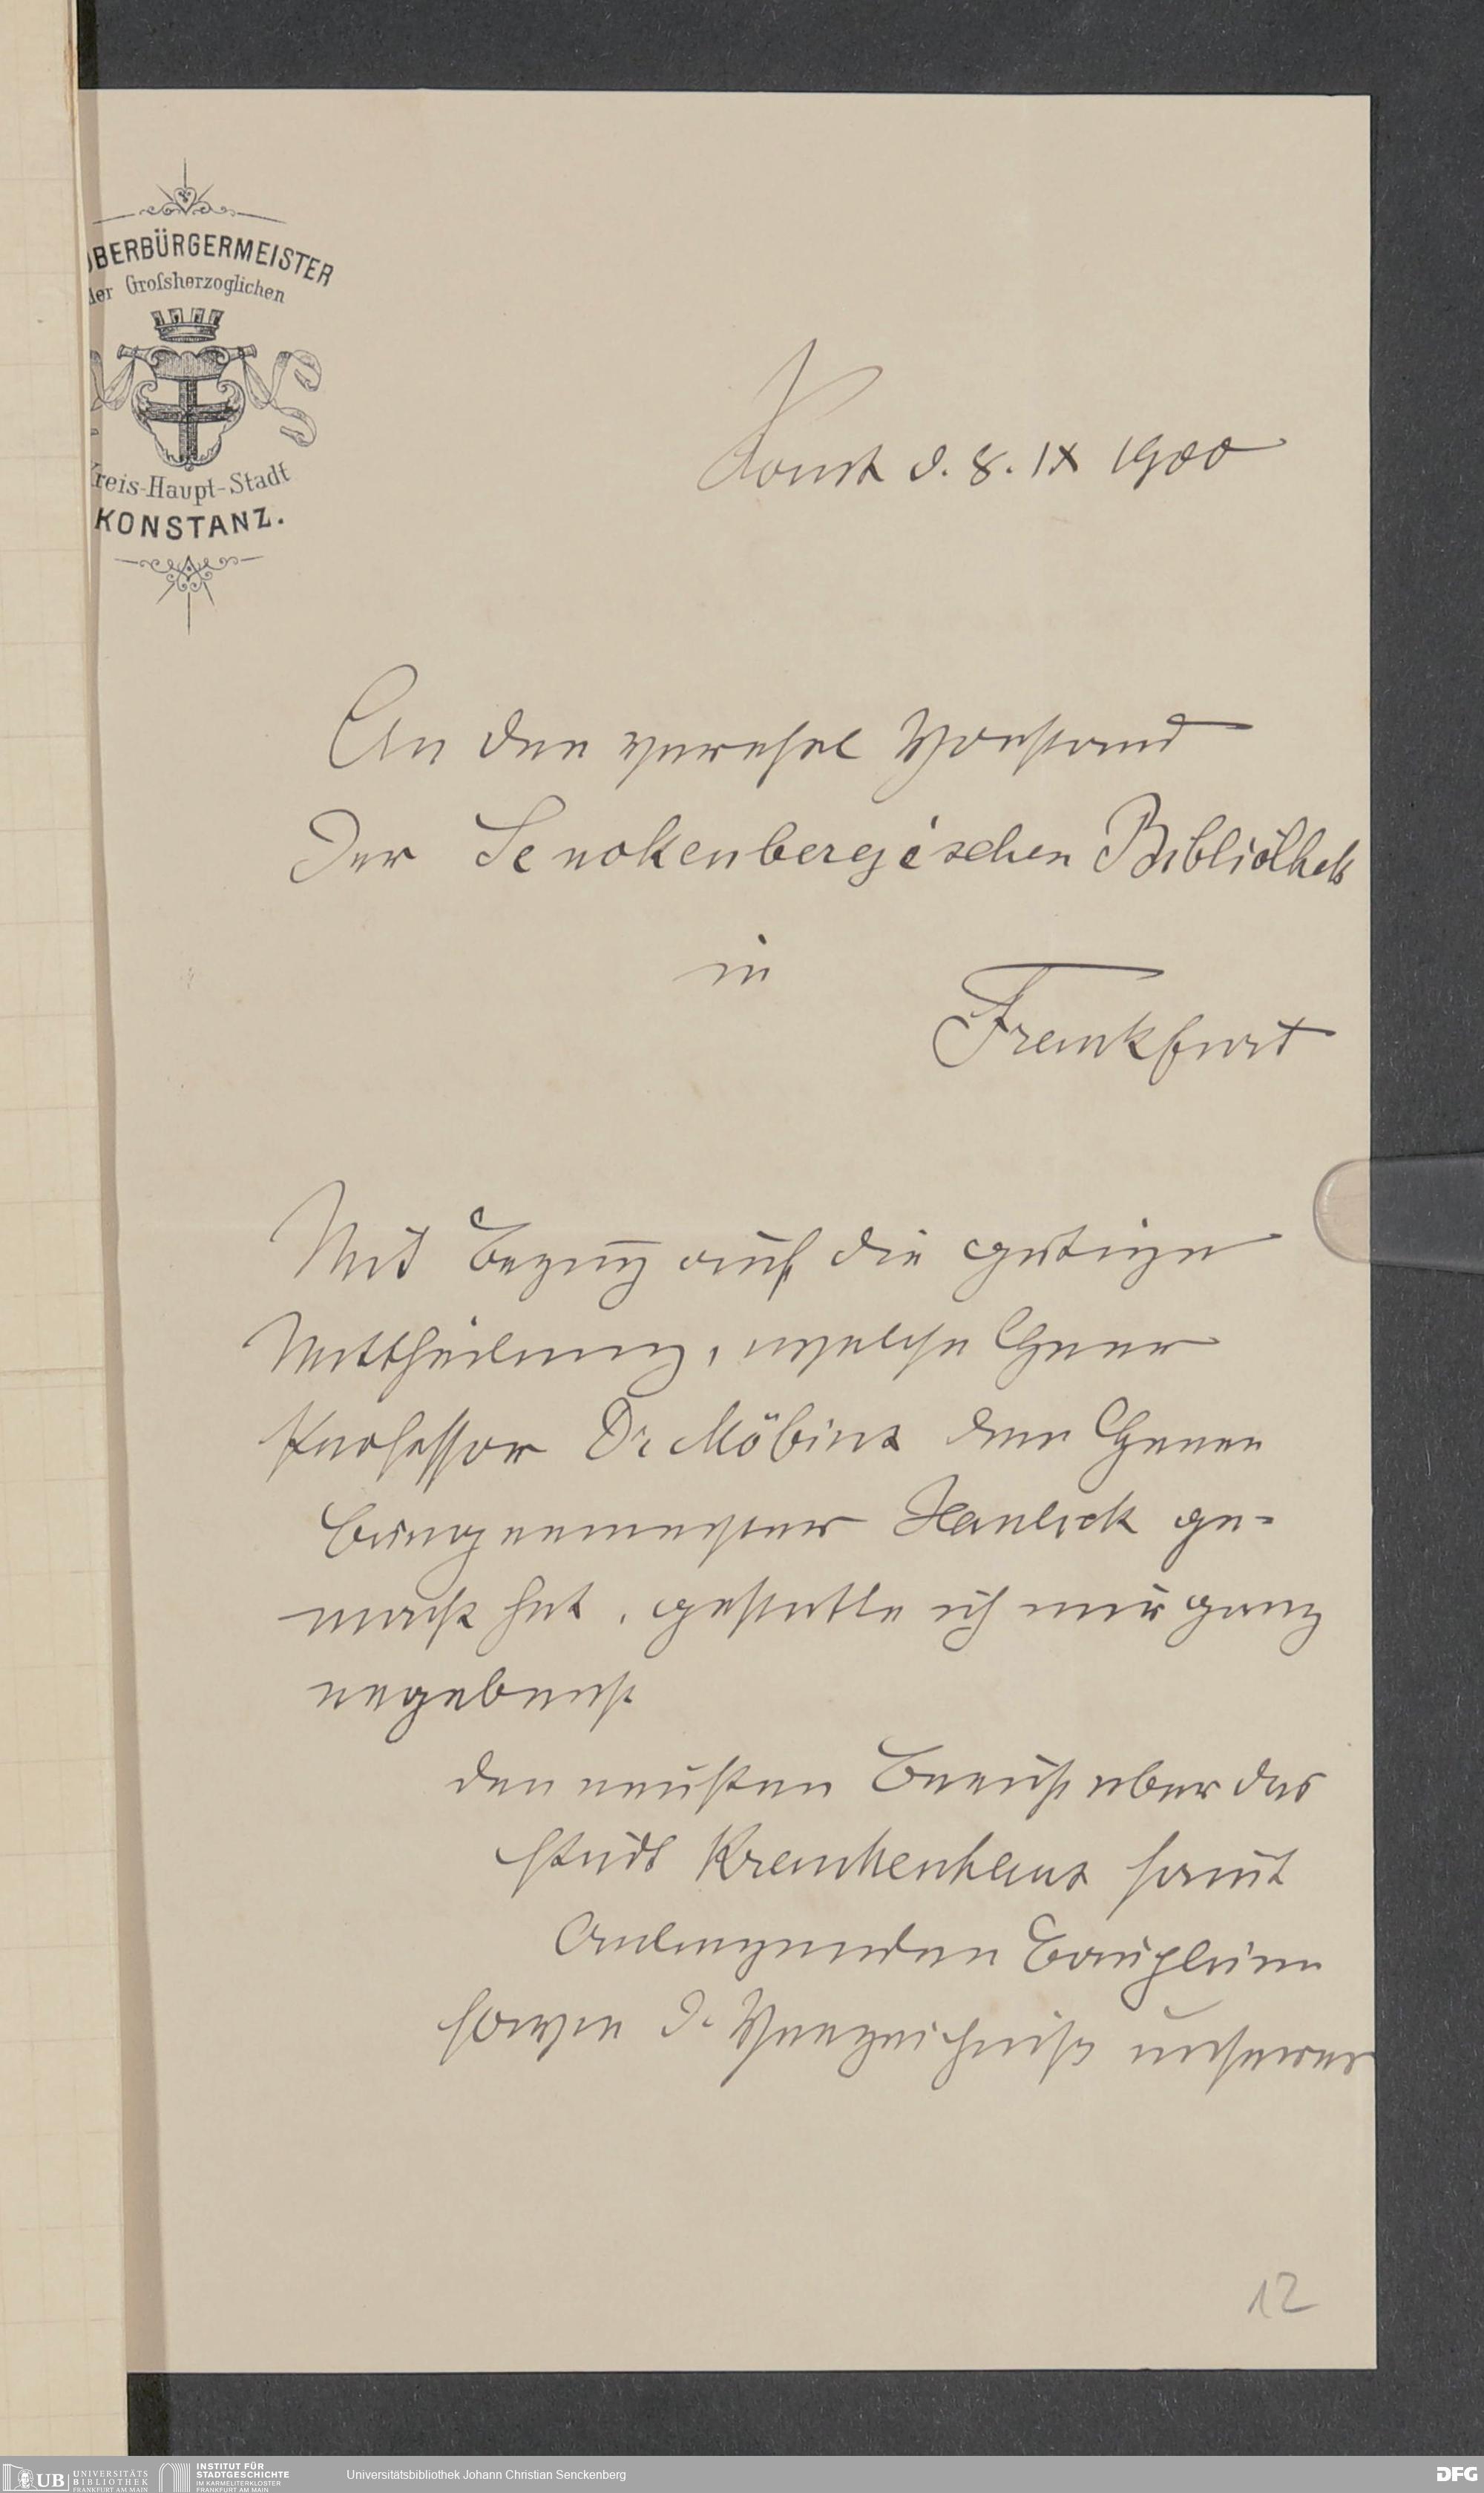 OBERBÜRGERMEISTER
der Großherzoglichen
Kreis-Haupt-Stadt
KONSTANZ.
Konst d. 8. IX 1900
An den verehrl Vorstand
der Senckenbergischen Bibliothek
in
Frankfurt
Mit Bezug auf die gütige
Mittheilung, welche Herr
Professor Dr Möbius dem Herrn
Bürgermeister ge-
macht hat, gestatte ich mir ganz
ergebenst
den neusten Bericht über das
städt Krankenhaus samt
anliegenden Bauplänen
sowie d. Verzeichniß unserer
12
UB UNIVERSITÄTS
BIBLIOTHEK
FRANKFURT AM MAIN
INSTITUT FÜR
STADTGESCHICHTE
IM KARMELITERKLOSTER
FRANKFURT AM MAIN
Universitätsbibliothek Johann Christian Senckenberg
DFG